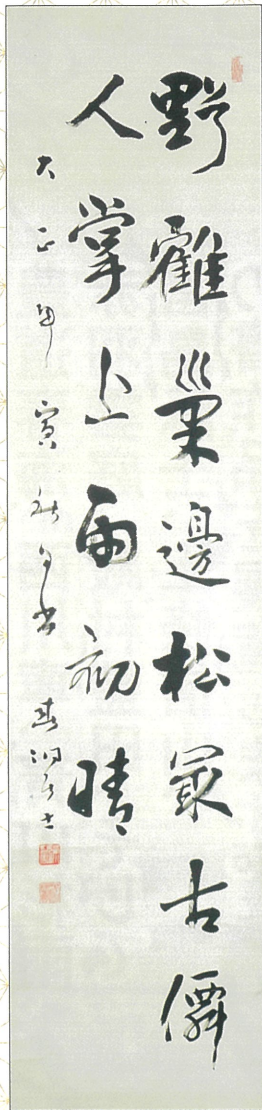 野鶴巢邊松最古僊
人掌上雨初晴
大正甲寅秋日書 春洞居士